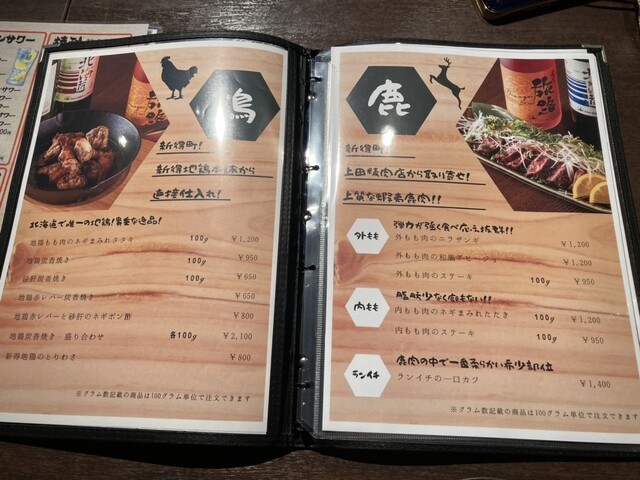 鶏
新得町!
新得地鶏
から
直接仕入れ!
北海道で唯一の地鶏!貴重な逸品!
地鶏もも肉のネギまみれタタキ 100g ¥1,200
地鶏炭香焼き 100g ¥950
砂肝炭香焼き 100g ¥650
地鶏赤レバー炭香焼き ¥650
地鶏赤レバーと砂肝のネギポン酢 ¥800
地鶏炭香焼き・盛り合わせ 各100g ¥2,100
新得地鶏のとりわさ ¥800
※グラム数記載の商品は100グラム単位で注文できます
鹿
新得町!
上田精肉店から取り寄せ!
上質な蝦夷鹿肉!!
外もも
弾力が強く食べ応え抜群!!
外もも肉のニラザンギ ¥1,200
外もも肉の和風アヒージョ ¥1,200
外もも肉のステーキ 100g ¥950
内もも
脂肪少なく臭みない!!
内もも肉のネギまみれたたき 100g ¥1,200
内もも肉のステーキ 100g ¥950
ランイチ
鹿肉の中で一番柔らかい希少部位
ランイチの一口カツ ¥1,400
※グラム数記載の商品は100グラム単位で注文できます